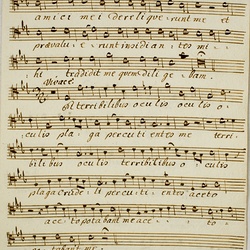 amici mei dereliquerunt me et
prævalue runt insidian tes mi
hi tradidit me quem dilige bam.
Vivace.
et terribilibus oculis oculis o
culis pla ga percutientes me terri
bilibus oculis terribilibus oculis
plaga crude li percuti entes aceto
aceto potabant me ace to
potabant me